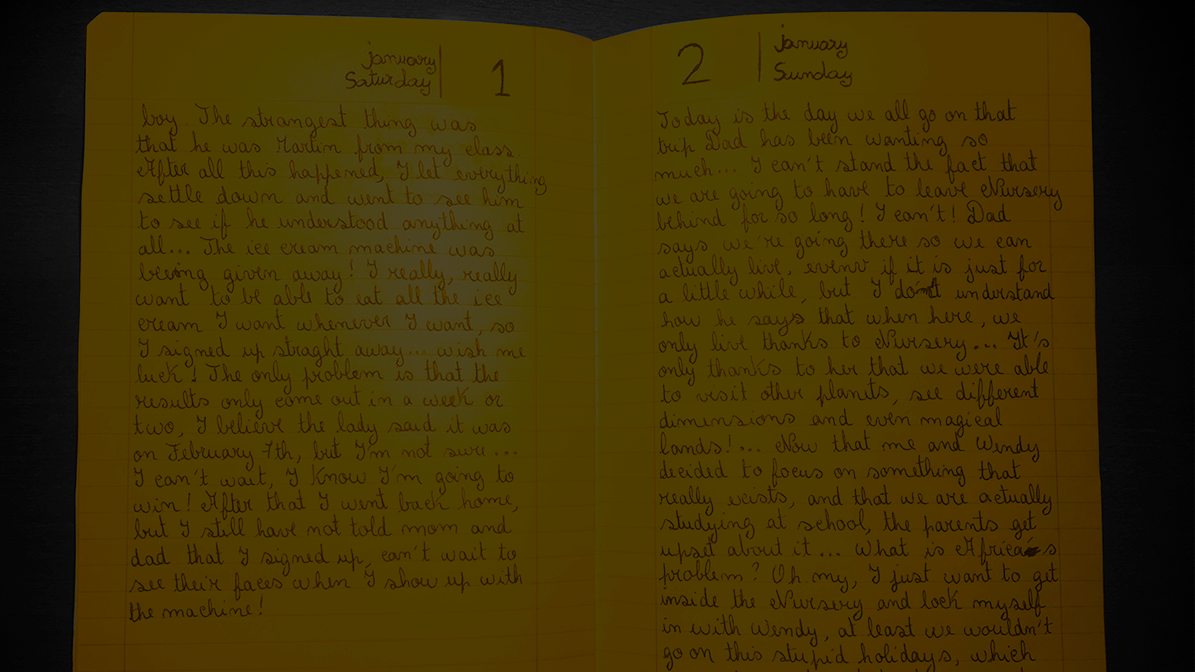 january
Saturday
1
boy. The strangest thing was
that he was Martin from my class.
After all this happened, I let everything
settle down and went to see him
to see if he understood anything at
all... The ice cream machine was
being given away! I really, really
want to be able to eat all the ice
cream I want whenever I want, so
I signed up straght away... wish me
luck! The only problem is that the
results only come out in a week or
two, I believe the lady said it was
on February 7th, but I'm not sure...
I can't wait, I know I'm going to
win! After that I went back home,
but I still have not told mom and
dad that I signed up, can't wait to
see their faces when I show up with
the machine!
2
january
Sunday
Today is the day we all go on that
trip Dad has been wanting so
much... I can't stand the fact that
we are going to have to leave Nursery
behind for so long! I can't! Dad
says we're going there so we can
actually live, even if it is just for
a little while, but I don't understand
how he says that when here, we
only live thanks to Nursery... It's
only thanks to her that we were able
to visit other planets, see different
dimensions and even magical
lands!... Now that me and Wendy
decided to focus on something that
really exists, and that we are actually
studying at school, the parents get
upset about it... What is Africa's
problem? Oh my, I just want to get
inside the Nursery and lock myself
in with Wendy, at least we wouldn't
go on this stupid holidays, which